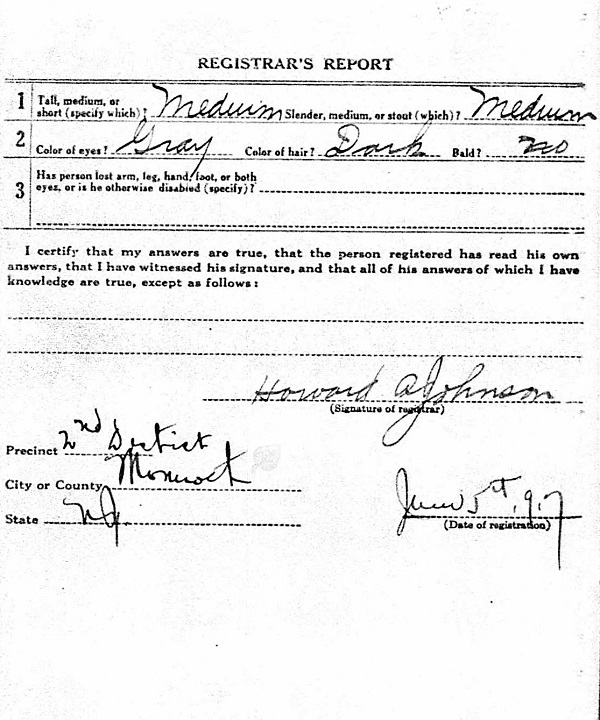 REGISTRAR'S REPORT
1 Tall, medium, or short (specify which)? Medium Slender, medium, or stout (which)? Medium
2 Color of eyes? Gray Color of hair? Dark Bald? no
3 Has person lost arm, leg, hand, foot, or both
eyes, or is he otherwise disabled (specify)?
I certify that my answers are true, that the person registered has read his own
answers, that I have witnessed his signature, and that all of his answers of which I have
knowledge are true, except as follows:
Howard A Johnson
(Signature of registrar)
Precinct 2nd District
City or County Monmouth
State NJ.
June 5th, 917
(Date of registration)